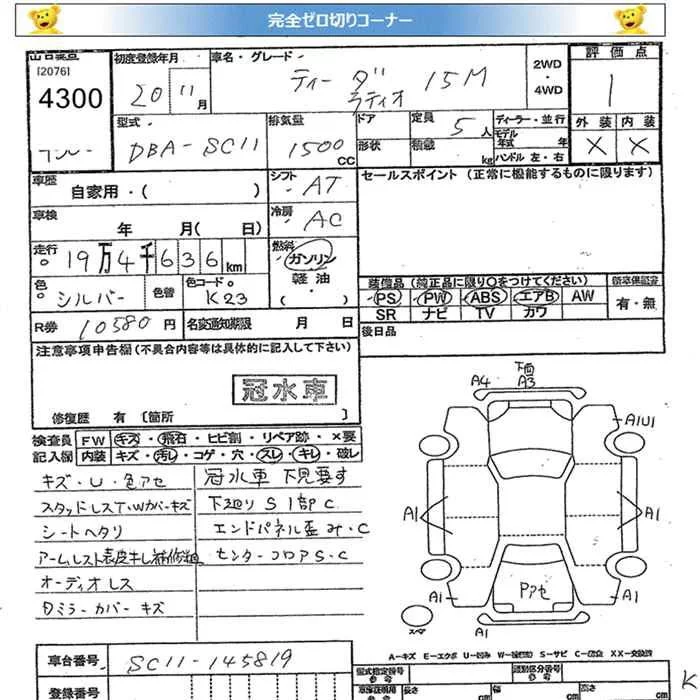 完全ゼロ切りコーナー
[2076]
4300
初度登録年月
20 11月
車名・グレード
ティーダ
ラティオ
15M
2WD
・
4WD
評価点
1
型式
DBA-SC11
排気量
1500
CC
ドア
形状
定員
5人
積載
kg
ディーラー・並行
モデル
年式 年
ハンドル 左・右
外装 内装
× ×
車歴
自家用・( )
シフト
AT
セールスポイント(正常に機能するものに限ります)
車検
年 月( 日)
冷房
AC
走行
19万4千636km
燃料
ガソリン
軽油
・( )
色
シルバー
色替
色コード
K23
装備品(純正品に限り○をつけてください)
PS PW ABS エアB AW
SR ナビ TV カワ
新車保証書
有・無
R券 10580円
名変通知期限 月 日
後日品
注意事項申告欄(不具合内容等は具体的に記入して下さい)
冠水車
修復歴 有〔箇所 〕
検査員
記入欄
FW キズ・飛石・ヒビ割・リペア跡・×要
内装 キズ・汚レ・コゲ・穴・スレ・キレ・破レ
キズ・U・色アセ
冠水車 下見要す
スタッドレスT・Wカバーキズ
下廻りS 1部C
シートヘタリ
エンドパネル歪み・C
センターフロアS・C
オーディオレス
Dミラーカバーキズ
A4
下面
A3
A1U1
A1
A1
A1
A1
Pアセ
スペア
A1
A-キズ E-エクボ U-凹み W-補修跡 S-サビ C-腐食 XX-交換済
車台番号
SC11-145819
登録番号
型式指定番号
参考
類別区分番号
参考
長さ
cm
幅
cm
高さ
cm
K